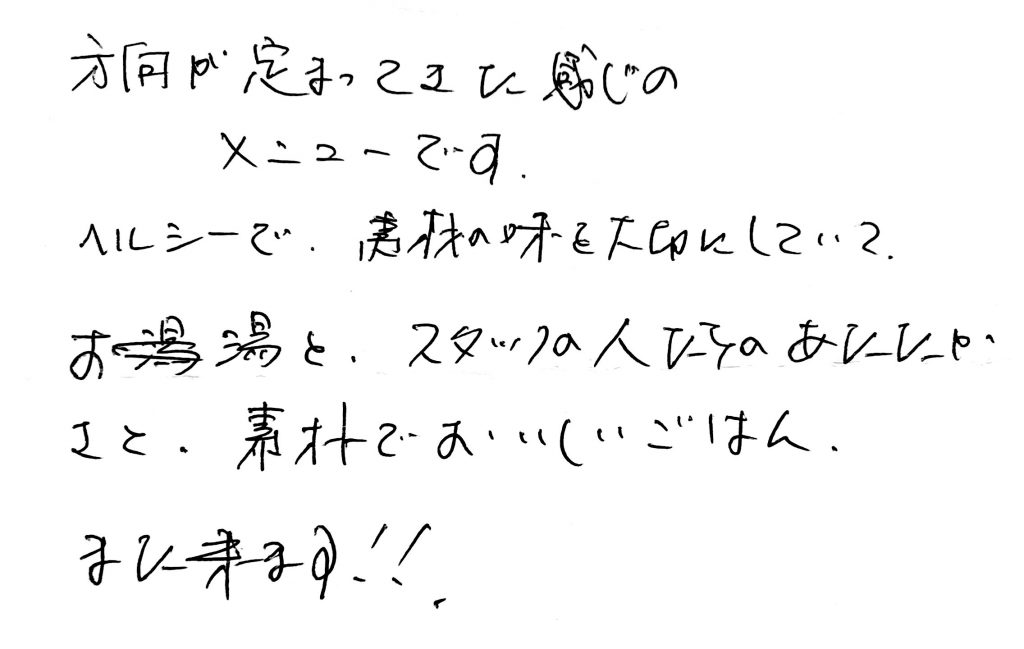 方向が定まってきた感じの
メニューです.
ヘルシーで、素材の味を大切にしていて、
お湯と、スタッフの人たちのあたたか
さと、素朴でおいしいごはん、
また来ます!!